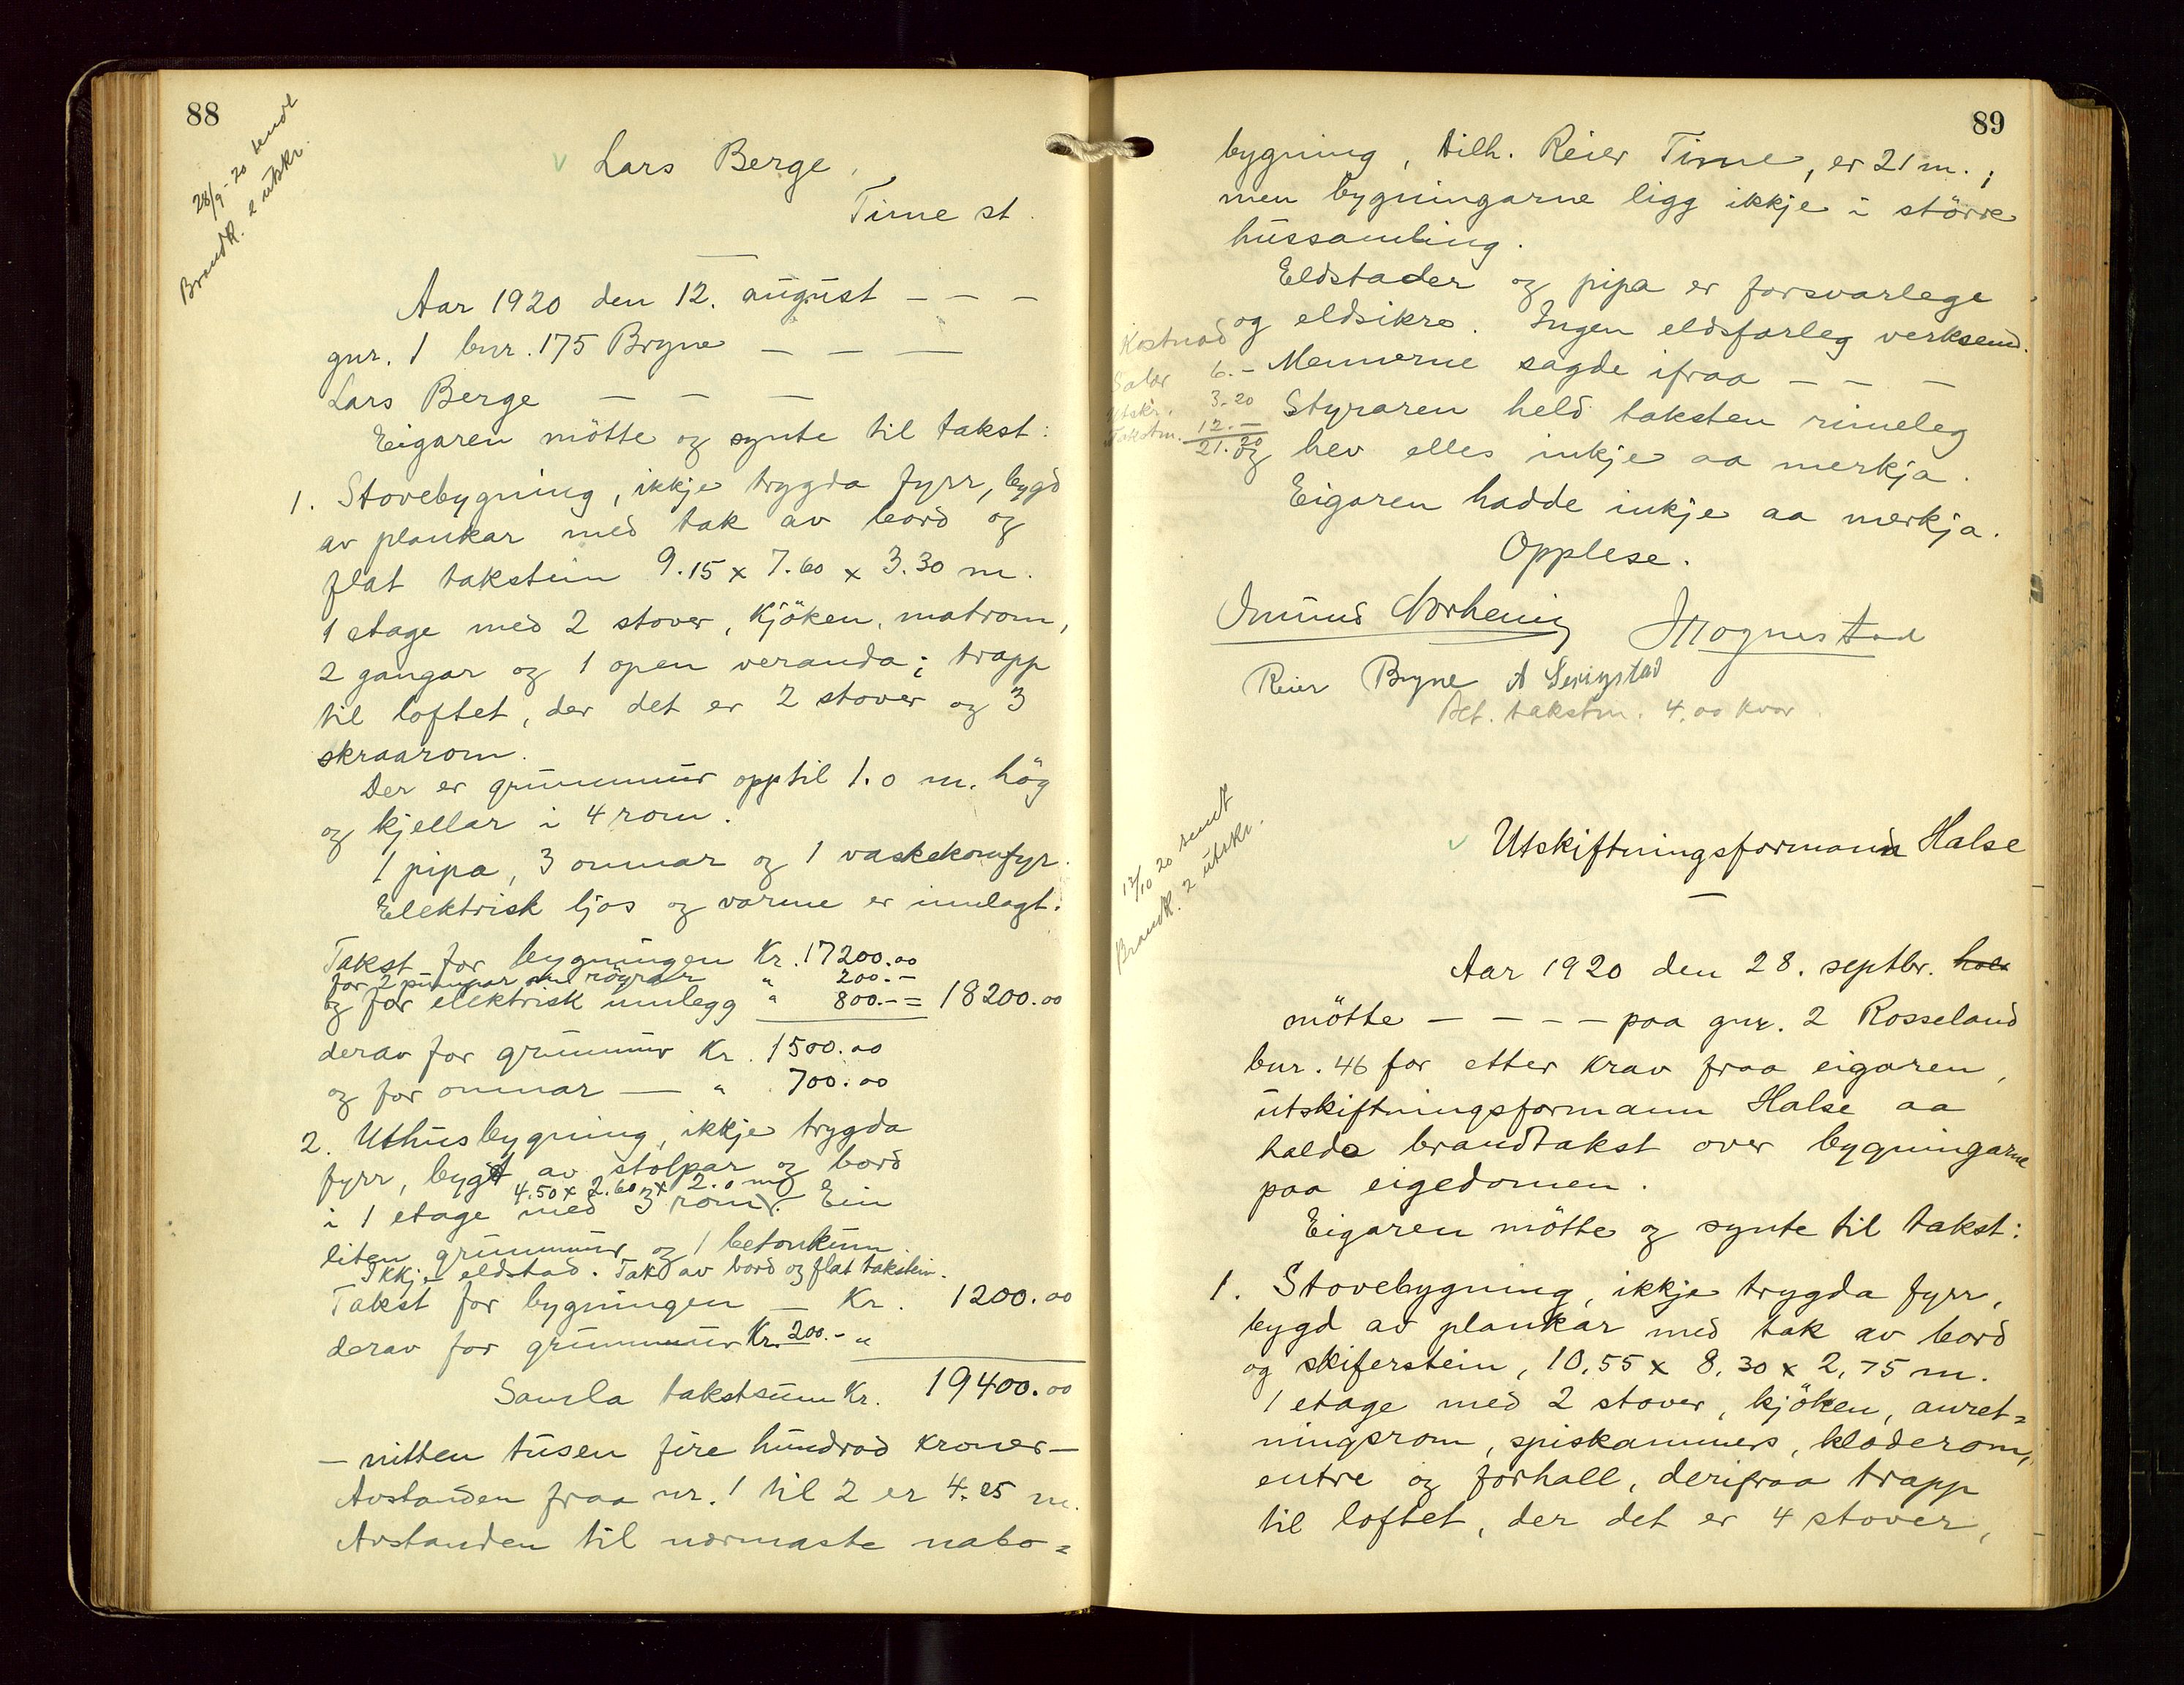 88
28/9-20 sendt
Brandk. 2 utskr.
Lars Berge,
Time st.
Aar 1920 den 12. august – – –
gnr. 1 bnr. 175 Bryne – – –
Lars Berge – – –
Eigaren mötte og synte til takst:
1. Stovebygning, ikkje trygda fyrr, bygd
av plankar med tak av bord og
flat takstein 9.15 x 7.60 x 3.30 m.
1 etage med 2 stover, kjöken, matrom,
2 gangar og 1 open veranda; trapp
til loftet, der det er 2 stover og 3
skraarom.
Der er grunnmur opptil 1.0 m. hög
og kjellar i 4 rom.
1 pipa, 3 omnar og 1 vaskekomfyr.
Elektrisk ljos og varme er innlagt.
Takst for bygningen Kr. 17200.00
for 2 pumpar med röyrar " 200.–
og for elektrisk innlegg " 800.– = 18200.00
derav for grunnmur Kr. 1500.00
og for omnar — " 700.00
2. Uthusbygning, ikkje trygda
fyrr, bygt av stolpar og bord
4.50 x 2.60 x 2.0 m
i 1 etage med 3 rom. Ein
liten grunnmur og 1 betonkum.
Ikkje eldstad. Tak av bord og flat takstein.
Takst for bygningen — Kr. 1200.00
derav for grunnmur Kr. 200.– "
Samla takstsum Kr. 19400.00
– nitten tusen fire hundrad kroner –
Avstanden fraa nr. 1 til 2 er 4.25 m.
Avstanden til nærmaste nabo=
89
bygning, tilh. Reier Time, er 21 m.;
men bygningarne ligg ikkje i större
hussamling.
Eldstader og pipa er forsvarlege
og eldsikre. Ingen eldsfarleg verksemd.
Mennerne sagde ifraa – – –
Styraren held taksten rimeleg
og hev elles inkje aa merkja.
Kostnad
Salær 6.–
Utskr. 3.20
Takstm. 12.–
21.20
Eigaren hadde inkje aa merkja.
Opplese.
Omund Norheim
Reier Bryne A Serigstad
Bet. takstm. 4.00 kvar.
12/10 20 sendt
Brandk. 2 utskr.
Utskiftningsformann Halse
Aar 1920 den 28. septbr. hol
mötte – – – – paa gnr. 2 Rosseland
bnr. 46 for etter krav fraa eigaren,
utskiftningsformann Halse aa
halda brandtakst over bygningarne
paa eigedomen.
Eigaren mötte og synte til takst:
1. Stovebygning, ikkje trygda fyrr,
bygd av plankar med tak av bord
og skiferstein, 10.55 x 8.30 x 2.75 m.
1 etage med 2 stover, kjöken, anret=
ningsrom, spiskammers, klæderom,
entre og forhall, derifraa trapp
til loftet, der det er 4 stover,